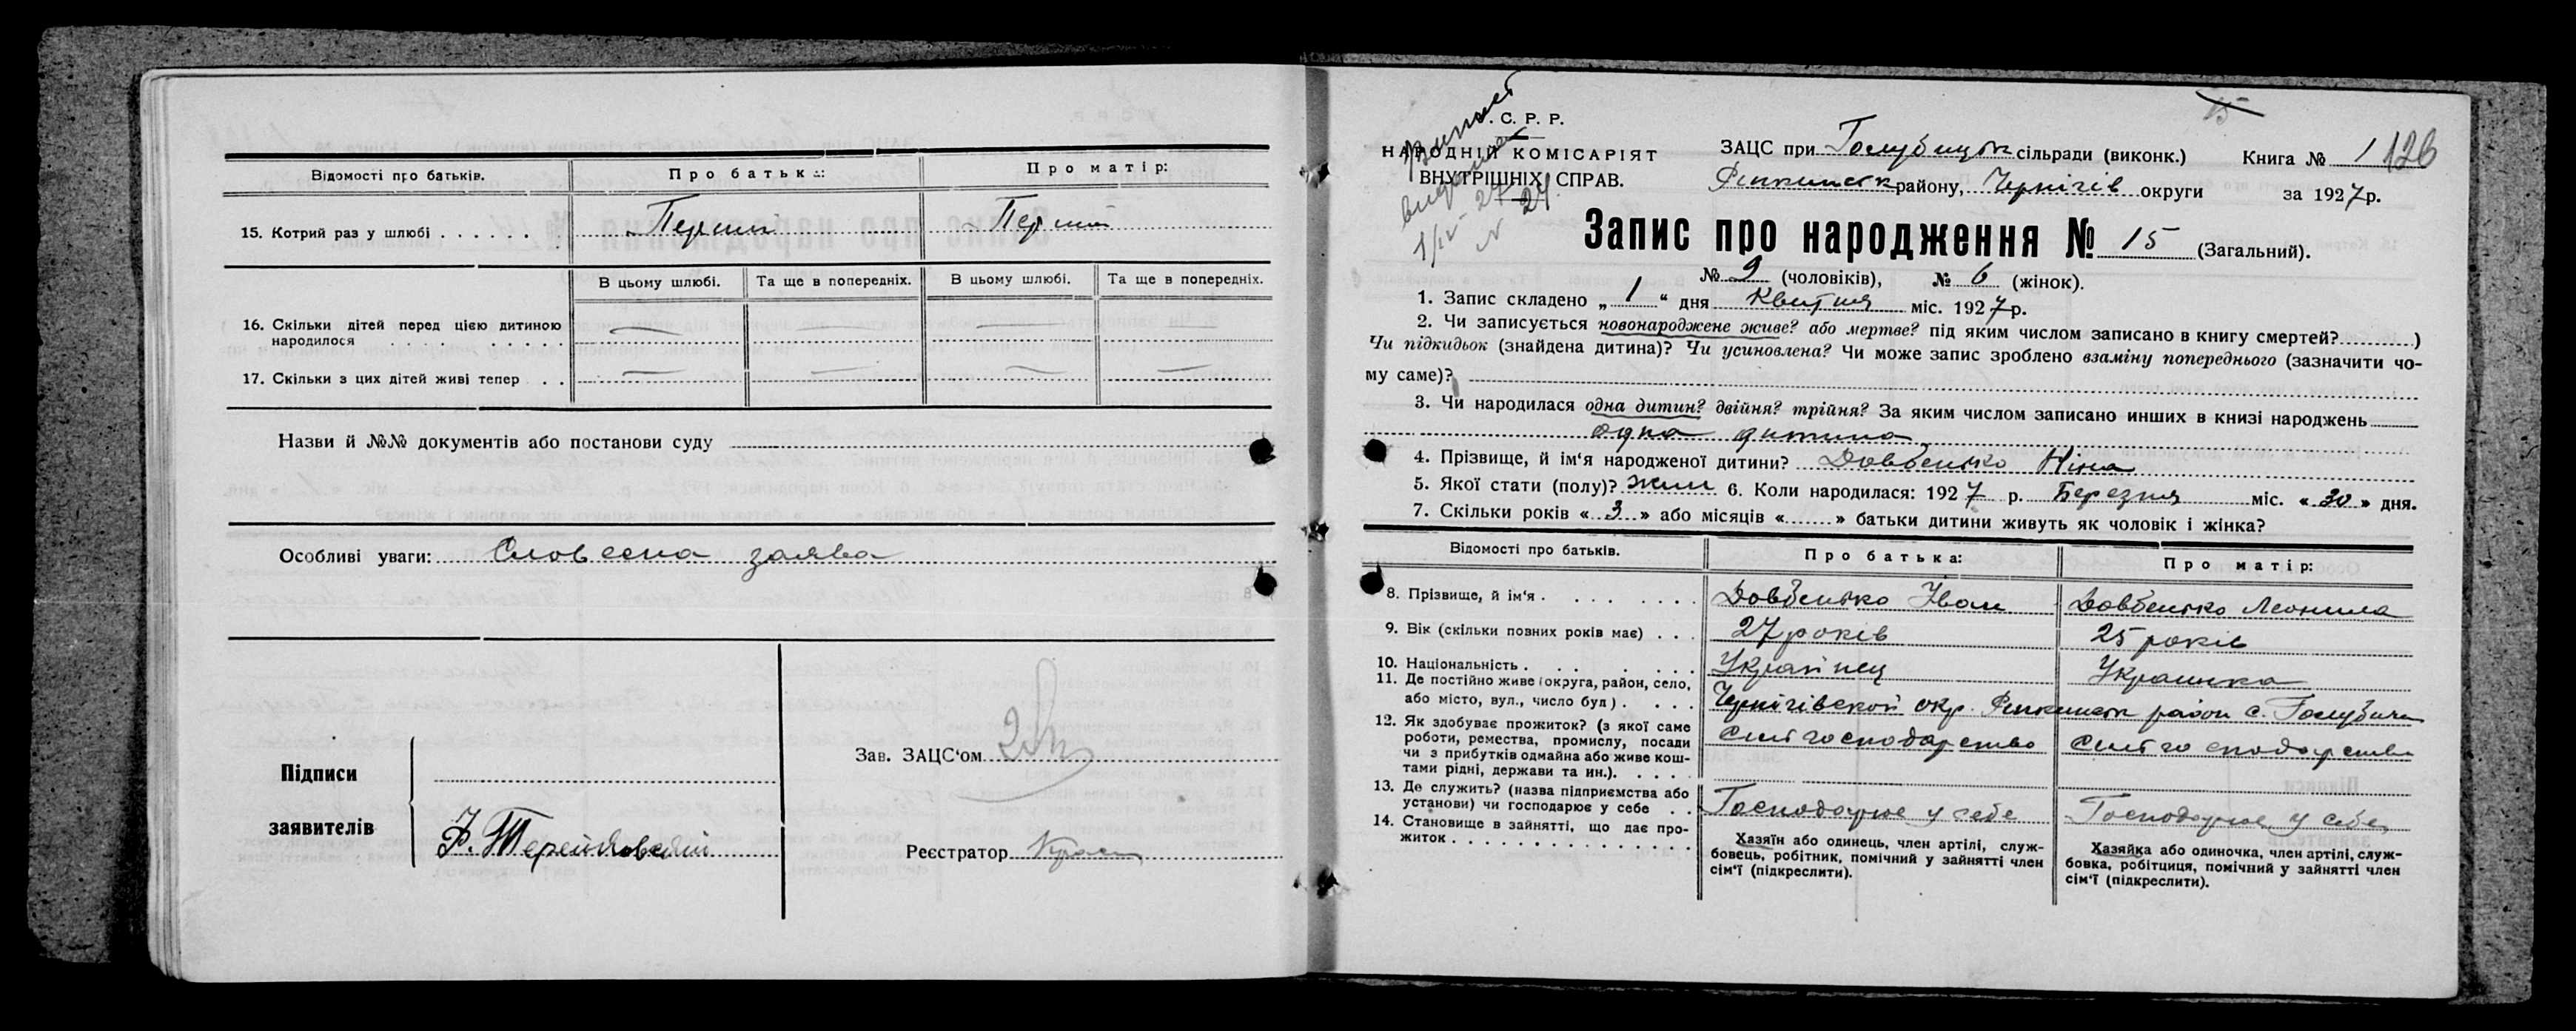 Відомості про батьків. Про батька: Про матір:
15. Котрий раз у шлюбі Перший Перший
В цьому шлюбі. Та ще в попередніх. В цьому шлюбі. Та ще в попередніх.
16. Скільки дітей перед цією дитиною
народилося
17. Скільки з цих дітей живі тепер
Назви й №№ документів або постанови суду
Особливі уваги: Словесна заява
Підписи
заявителів
Зав. ЗАЦС'ом
Реєстратор
15
С. Р. Р.
НАРОДНІЙ КОМІСАРІЯТ
ВНУТРІШНІХ СПРАВ.
ЗАЦС при Голубицьк сільради (виконк.) Книга № 1 126
Ріпкинськ району, Чернігів округи за 1927р.
Запис про народження № 15 (Загальний).
№ 9 (чоловіків), № 6 (жінок).
1. Запис складено „ 1 “ дня Квітня міс. 1927р.
2. Чи записується новонароджене живе? або мертве? під яким числом записано в книгу смертей? )
Чи підкидьок (знайдена дитина)? Чи усиновлена? Чи може запис зроблено взаміну попереднього (зазначити чо-
му саме)?
3. Чи народилася одна дитин? двійня? трійня? За яким числом записано инших в книзі народжень
одна дитина
4. Прізвище, й ім'я народженої дитини? Довбенько Ніна
5. Якої стати (полу)? жин 6. Коли народилася: 1927 р. Березня міс. « 30 » дня.
7. Скільки років « 3 » або місяців « » батьки дитини живуть як чоловік і жінка?
Відомості про батьків. Про батька: Про матір:
8. Прізвище, й ім'я Довбенько Іван Довбенько Леонила
9. Вік (скільки повних років має) 27 років 25 років
10. Національність Українец Украинка
11. Де постійно живе (округа, район, село,
або місто, вул., число буд) Чернігівской окр. Ріпкинськ район с. Голубичи
12. Як здобуває прожиток? (з якої саме
роботи, ремества, промислу, посади
чи з прибутків одмайна або живе кош-
тами рідні, держави та ин.).
сильгосподарство сильгосподарство
13. Де служить? (назва підприємства або
установи) чи господарює у себе Господарює у себе Господарює у себе
14. Становище в зайнятті, що дає про-
житок
Хазяїн або одинець, член артілі, служ-
бовець, робітник, помічний у зайнятті член
сім'ї (підкреслити).
Хазяйка або одиночка, член артілі, служ-
бовка, робітниця, помічний у зайнятті член
сім'ї (підкреслити).